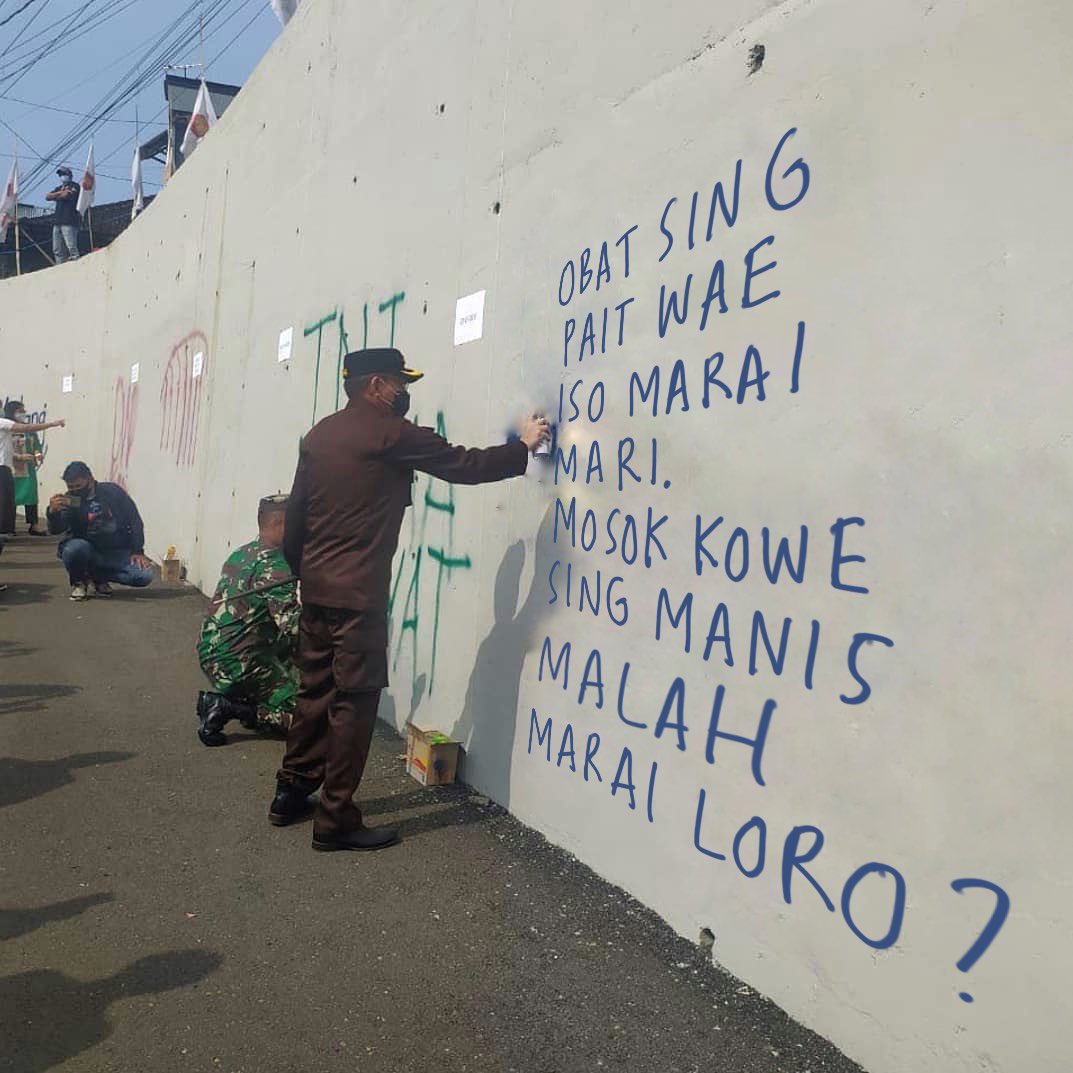 OBAT SING
PAIT WAE
ISO MARAI
MARI.
MOSOK KOWE
SING MANIS
MALAH
MARAI LORO?
TNI